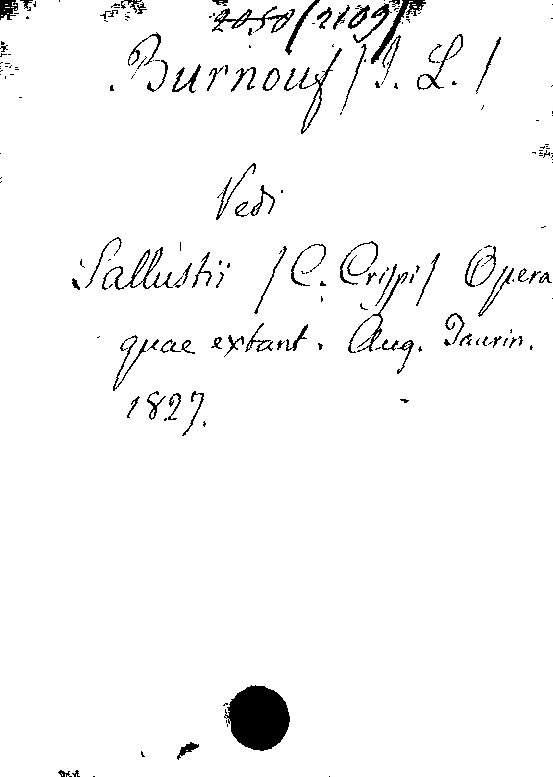 2050/2109/
Burnouf /J. L./
Vedi
Sallustii /C. Crispi/ Opera
quae extant. Aug. Taurin.
1827.